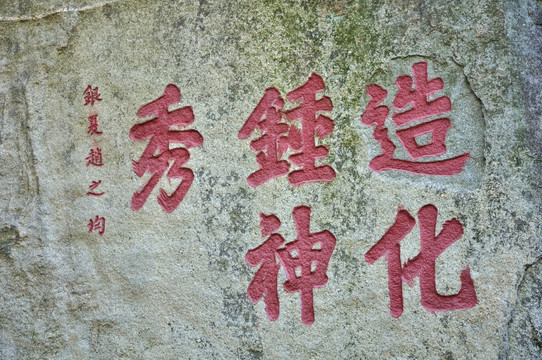 造化
鍾神
秀
銀夏趙之均